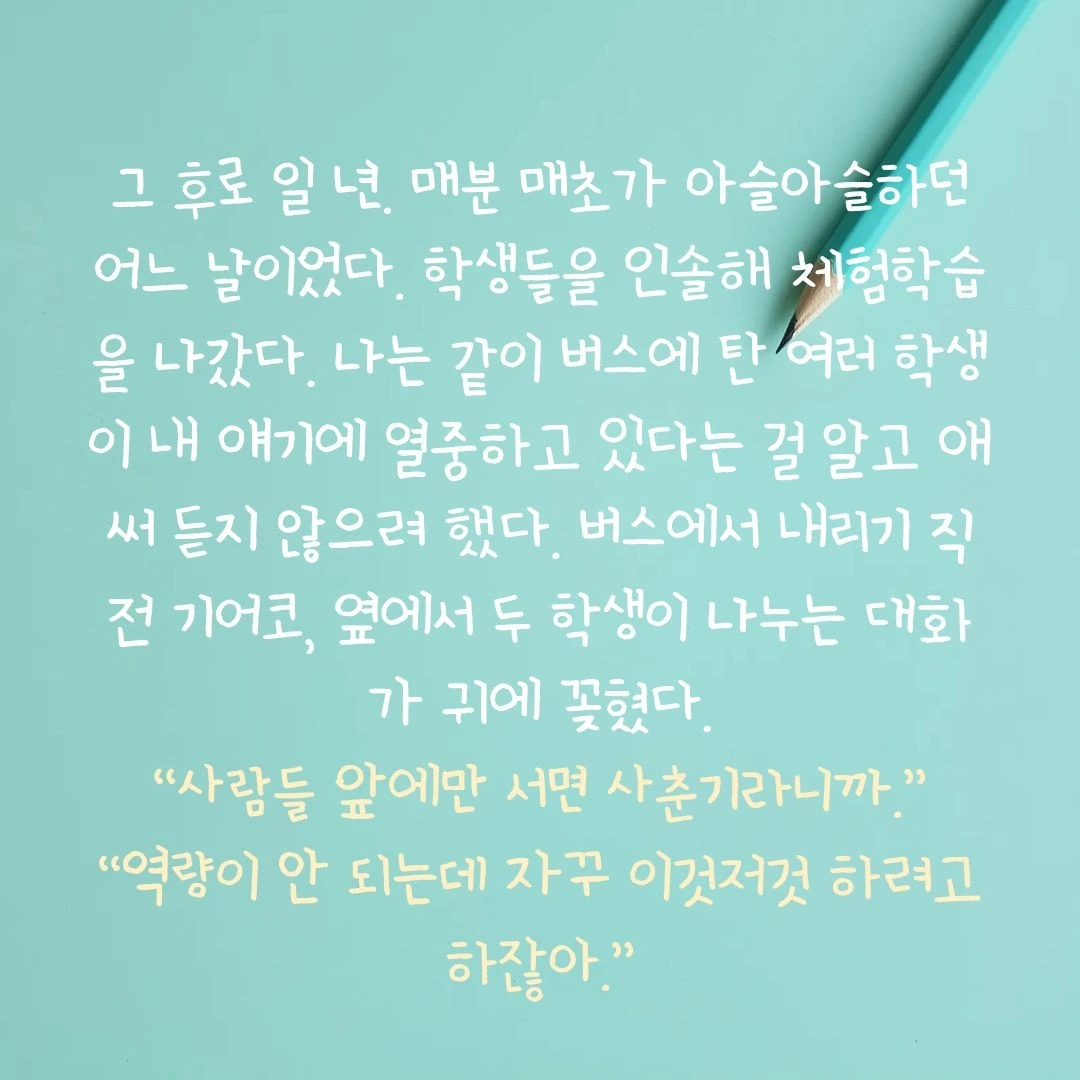 그 후로 일 년. 매분 매초가 아슬아슬하던
어느 날이었다. 학생들을 인솔해 체험학습
을 나갔다. 나는 같이 버스에 탄 여러 학생
이 내 얘기에 열중하고 있다는 걸 알고 애
써 듣지 않으려 했다. 버스에서 내리기 직
전 기어코, 옆에서 두 학생이 나누는 대화
가 귀에 꽂혔다.
“사람들 앞에만 서면 사춘기라니까.”
“역량이 안 되는데 자꾸 이것저것 하려고
하잖아.”